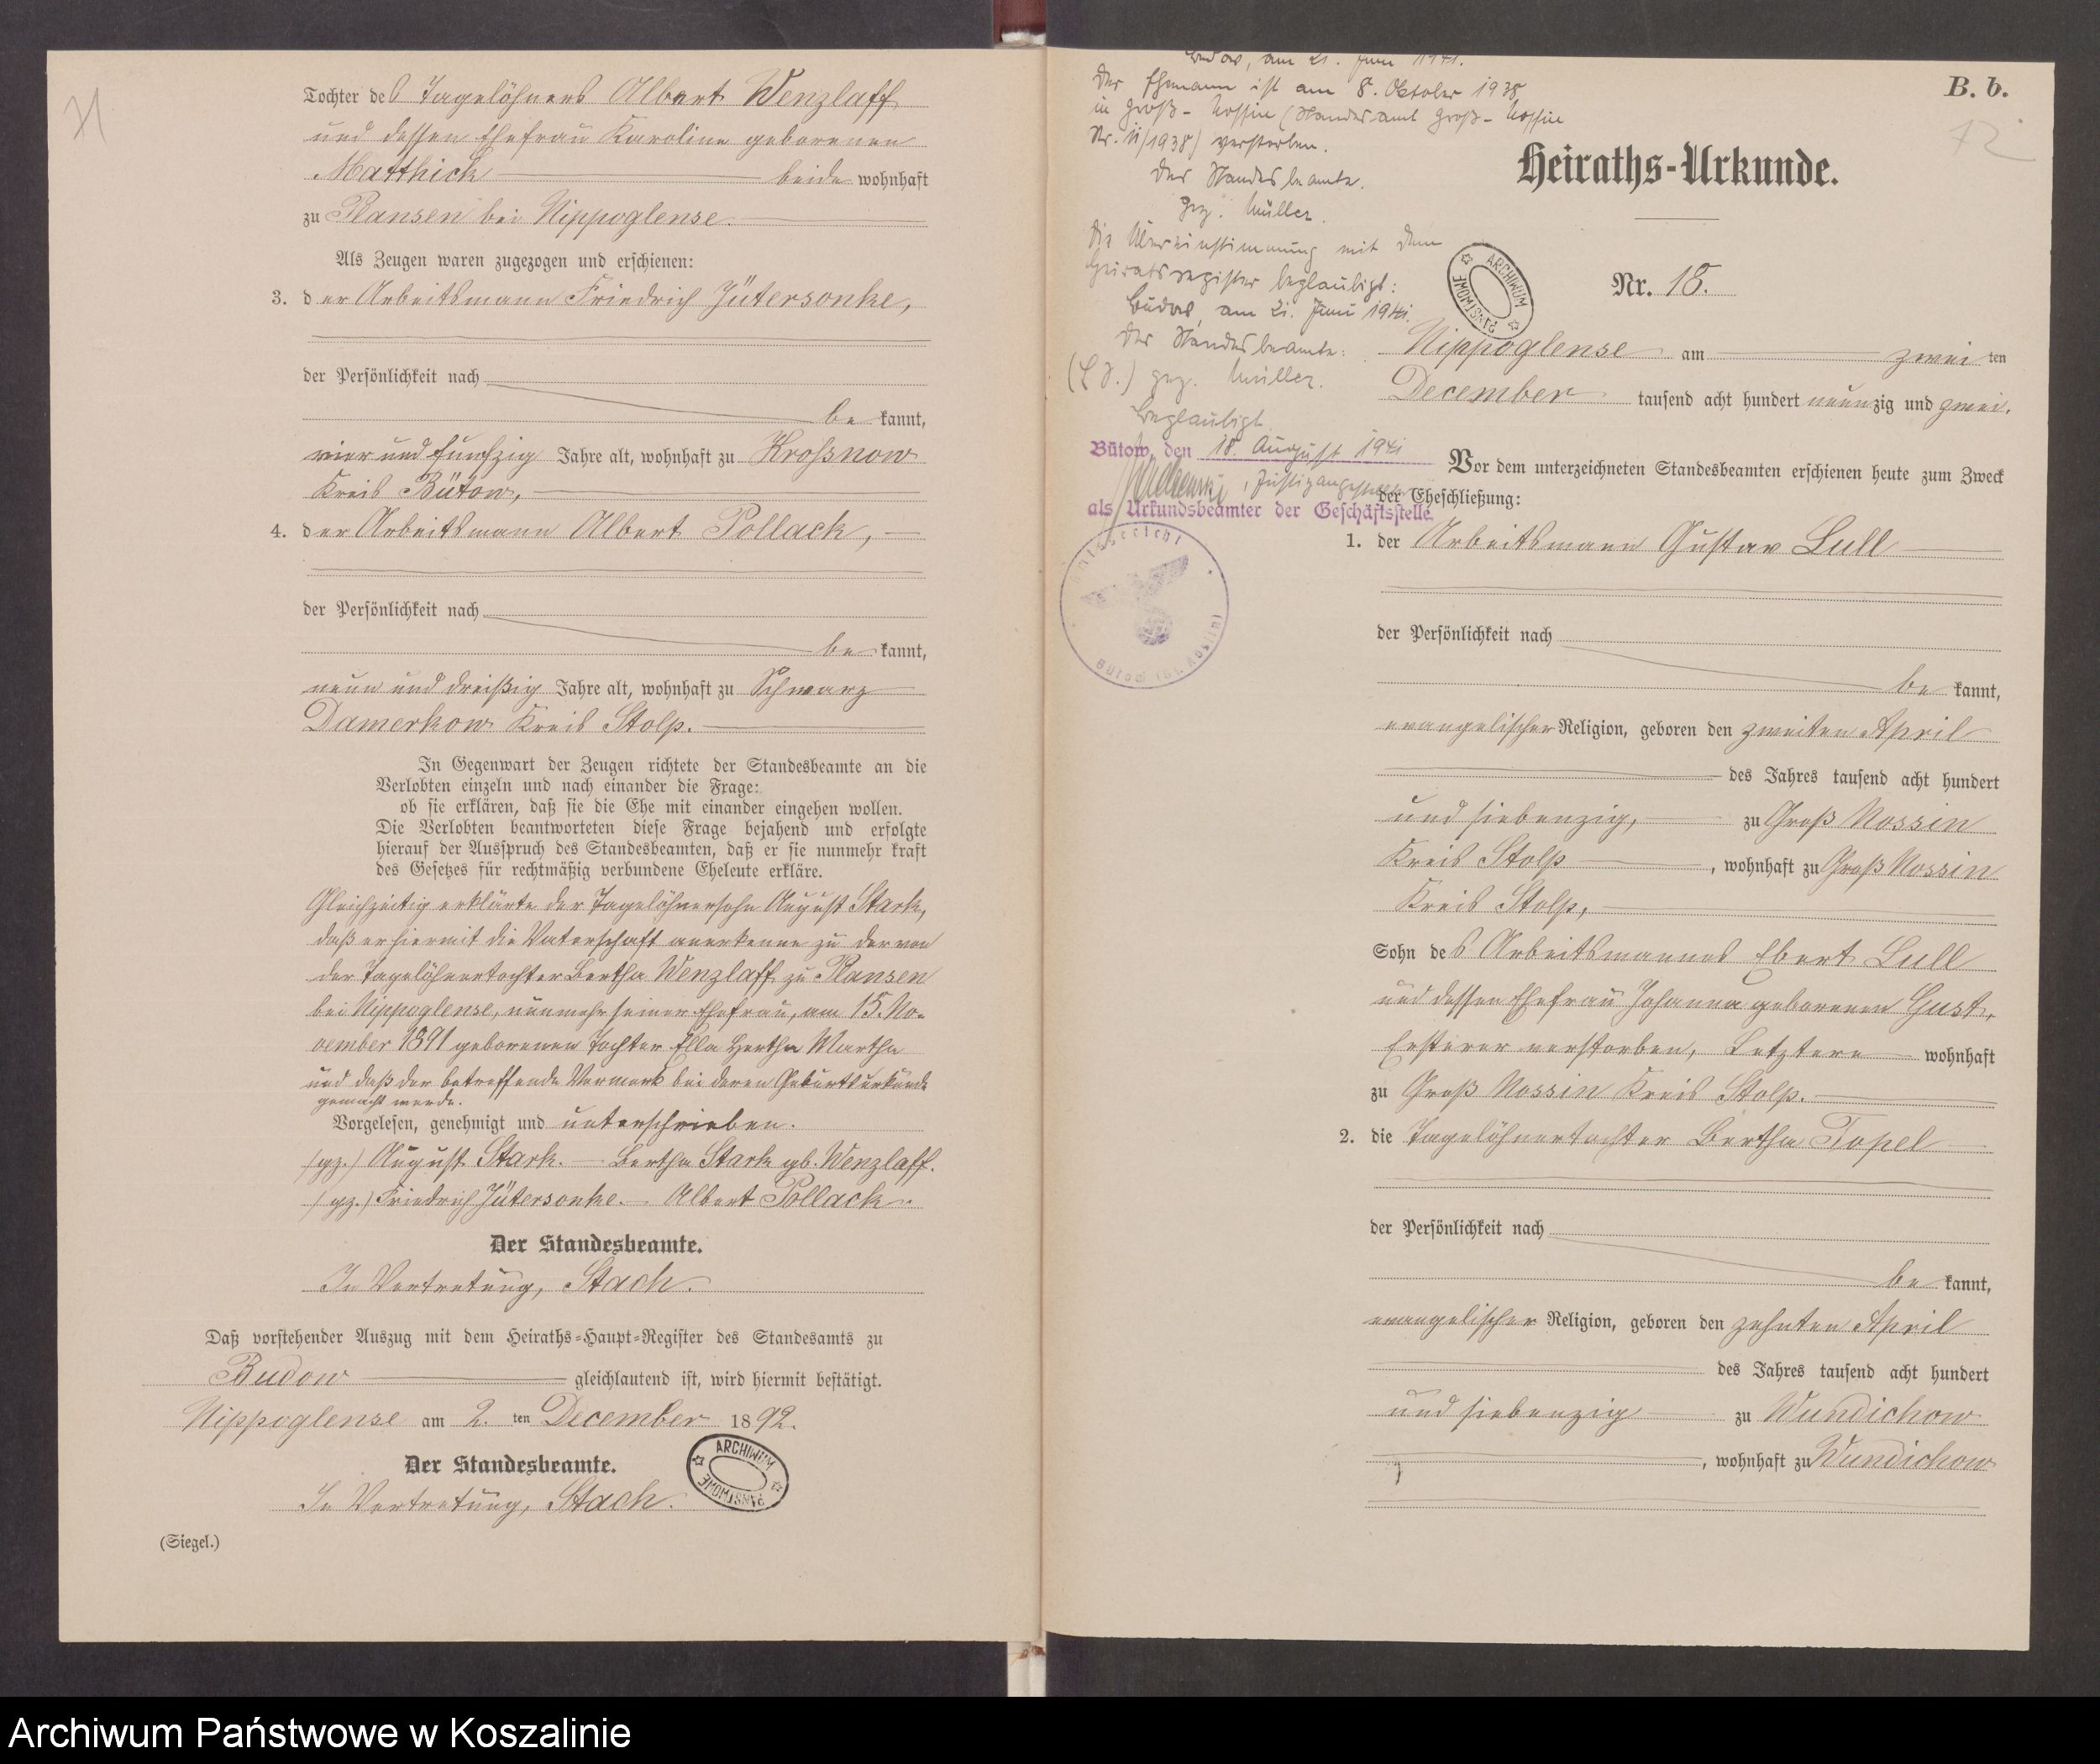 71
Tochter des Tagelöhners Albert Wenzlaff
und dessen Ehefrau Karoline geborenen
Matthick beide wohnhaft
zu Plansen bei Nippoglense.
Als Zeugen waren zugezogen und erschienen:
3. der Arbeitsmann Friedrich Jütersonke,
der Persönlichkeit nach
be kannt,
vier und funfzig Jahre alt, wohnhaft zu Krossnow
Kreis Bütow,
4. der Arbeitsmann Albert Pollack,
der Persönlichkeit nach
be kannt,
neun und dreißig Jahre alt, wohnhaft zu Schwarz
Damerkow Kreis Stolp.
In Gegenwart der Zeugen richtete der Standesbeamte an die
Verlobten einzeln und nach einander die Frage:
ob sie erklären, daß sie die Ehe mit einander eingehen wollen.
Die Verlobten beantworteten diese Frage bejahend und erfolgte
hierauf der Ausspruch des Standesbeamten, daß er sie nunmehr kraft
des Gesetzes für rechtmäßig verbundene Eheleute erkläre.
Gleichzeitig erklärte der Tagelöhnersohn August Stark,
daß er hiermit die Vaterschaft anerkenne zu der von
der Tagelöhnertochter Bertha Wenzlaff zu Plansen
bei Nippoglense, nunmehr seiner Ehefrau, am 15. No-
vember 1891 geborenen Tochter Ella Hertha Martha
und daß der betreffende Vermerk bei deren Geburtsurkunde
gemacht werde.
Vorgelesen, genehmigt und unterschrieben.
(gz.) August Stark. — Bertha Stark gb. Wenzlaff.
(gz.) Friedrich Jütersonke. — Albert Pollack.
Der Standesbeamte.
In Vertretung, Stach.
Daß vorstehender Auszug mit dem Heiraths-Haupt-Register des Standesamts zu
Budow gleichlautend ist, wird hiermit bestätigt.
Nippoglense am 2. ten December 1892.
Der Standesbeamte.
In Vertretung, Stach.
ARCHIWUM PAŃSTWOWE
(Siegel.)
Budow, am 21. Juni 1941.
Der Ehemann ist am 8. Oktober 1938
in Groß-Nossin (Standesamt Groß-Nossin
Nr. 11/1938) verstorben.
Der Standesbeamte.
gez. Müller.
Die Übereinstimmung mit dem
Heiratsregister beglaubigt:
Budow, am 21. Juni 1941.
Der Standesbeamte:
(L.S.) gez. Müller.
Beglaubigt
Bütow, den 18. August 1941
, Justizangestellter
als Urkundsbeamter der Geschäftsstelle
Amtsgericht
Bütow (Bz. Köslin)
B. b.
72
Heiraths-Urkunde.
ARCHIWUM PAŃSTWOWE
Nr. 18.
Nippoglense am zwei ten
December tausend acht hundert neunzig und zwei.
Vor dem unterzeichneten Standesbeamten erschienen heute zum Zweck
der Eheschließung:
1. der Arbeitsmann Gustav Lull
der Persönlichkeit nach
be kannt,
evangelischer Religion, geboren den zweiten April
des Jahres tausend acht hundert
und siebenzig, zu Groß Nossin
Kreis Stolp, wohnhaft zu Groß Nossin
Kreis Stolp,
Sohn des Arbeitsmannes Ebert Lull
und dessen Ehefrau Johanna geborenen Gust,
Ersterer verstorben, Letztere wohnhaft
zu Groß Nossin Kreis Stolp.
2. die Tagelöhnertochter Bertha Topel
der Persönlichkeit nach
be kannt,
evangelischer Religion, geboren den zehnten April
des Jahres tausend acht hundert
und siebenzig zu Wundichow
, wohnhaft zu Wundichow
Archiwum Państwowe w Koszalinie